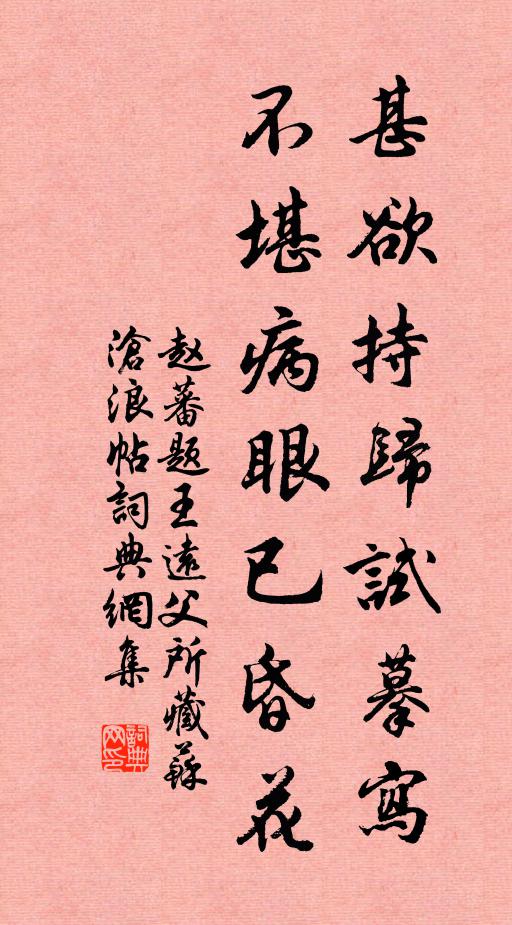 甚欲持歸試摹寫
不堪病眼已昏花
赵蕃题王遠父所藏蘇
滄浪帖詞典網集
詞典网印